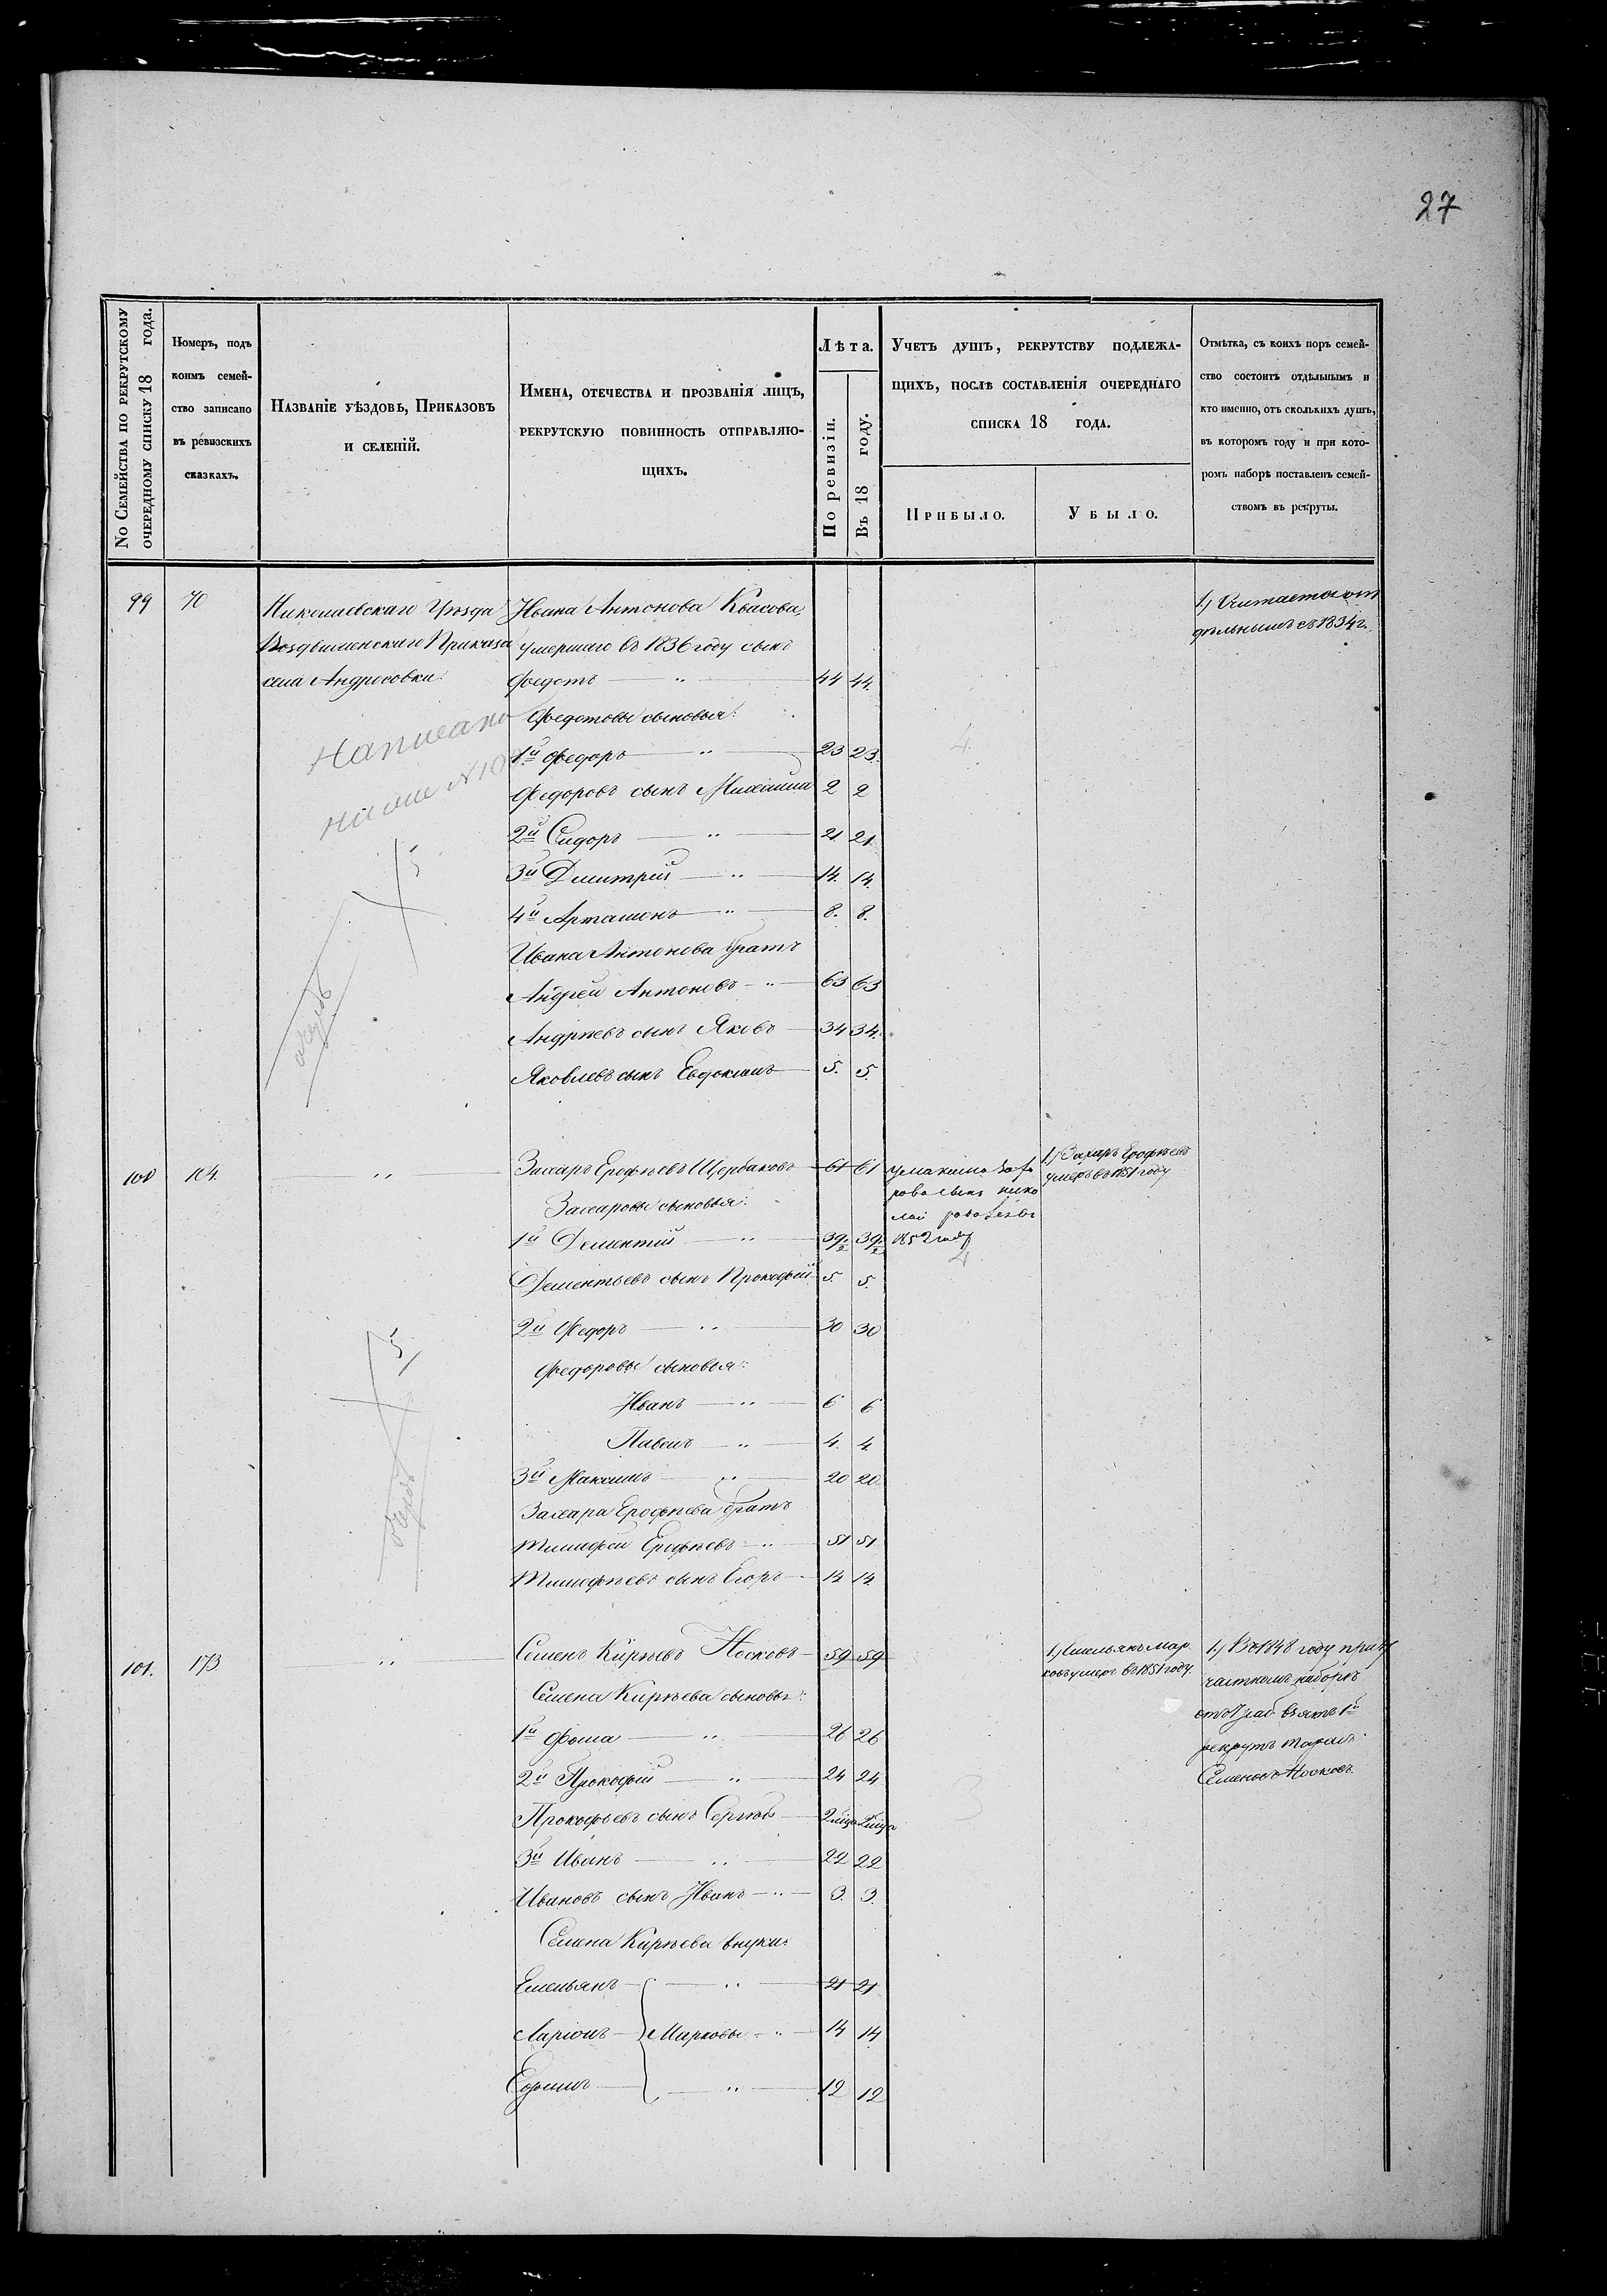 27
No Семейства по рекрутскому
очередному списку 18 года.
Номеръ, подъ
коимъ семей-
ство записано
въ ревизскихъ
сказкахъ.
Названіе уѣздовъ, Приказовъ
и селеній.
Имена, отечества и прозванія лицъ,
рекрутскую повинность отправляю-
щихъ.
Лѣта.
По ревизіи.
Въ 18 году.
Учетъ душъ, рекрутству подлежа-
щихъ, послѣ составленія очереднаго
списка 18 года.
Прибыло.
Убыло.
Отмѣтка, съ коихъ поръ семей-
ство состоитъ отдѣльнымъ и
кто именно, отъ сколькихъ душъ,
въ которомъ году и при кото-
ромъ наборѣ поставленъ семей-
ствомъ въ рекруты.
99 70
Николаевскаго Уѣзда
Воздвиженскаго Приказа
села Андросовки.
Написано
Ивана Антонова Квасова,
умершаго въ 1836 году сынъ
Федотъ — " — 44 44.
Федотовы сыновья:
1й Федоръ — " — 23 23.
4
Федоровъ сынъ Михаила 2 2
2й Сидоръ — " — 21. 21
3й Дмитрій — " — 14. 14.
4й Артамонъ — " — 8. 8.
Ивана Антонова братъ
Андрей Антоновъ — " — 63 63
Андрѣевъ сынъ Яковъ — 34 34.
Яковлевъ сынъ Евдокимъ — 5. 5.
1) Считается от
дѣльнымъ съ 1834 г.
5
очередь
100 104. "
Захаръ Ерофѣевъ Щербаковъ 61 61
Захаровы сыновья:
1й Дементій — " — 39½ 39½
Дементьевъ сынъ Прокофій 5 5.
2й Федоръ — " — 30 30
Федоровы сыновья:
Иванъ — " — 6 6
Павелъ — " — 4. 4
3й Максимъ — " — 20 20.
Захара Ерофѣева братъ
Тимофей Ерофѣевъ — " 51 51
Тимофѣевъ сынъ Егоръ — 14 14.
умаксима Заха
рова сынъ нико
лай
1852 году
4
1) Захаръ Ерофѣевъ
умеръ въ 1851 году
5
очередь
101. 173 "
Семенъ Кирѣевъ Носковъ — 59 59
Семена Кирѣева сыновья:
1й Фома — " — 26 26
2й Прокофій — " — 24 24
Прокофьевъ сынъ Сергѣй — 2 мѣца 2 мѣца
3й Иванъ — " — 22 22
Ивановъ сынъ Иванъ — " — 3. 3.
Семена Кирѣева внуки:
Емельянъ — " — 21 21
Ларіонъ — Марковы — " — 14 14.
Ефимъ — " — 12 12
3
1) Емельянъ Мар
ковъ умеръ въ 1851 году.
1) Въ 1848 году при 7
частномъ наборѣ
взятъ 1й
рекрутъ Тарасъ
Семеновъ Носковъ.